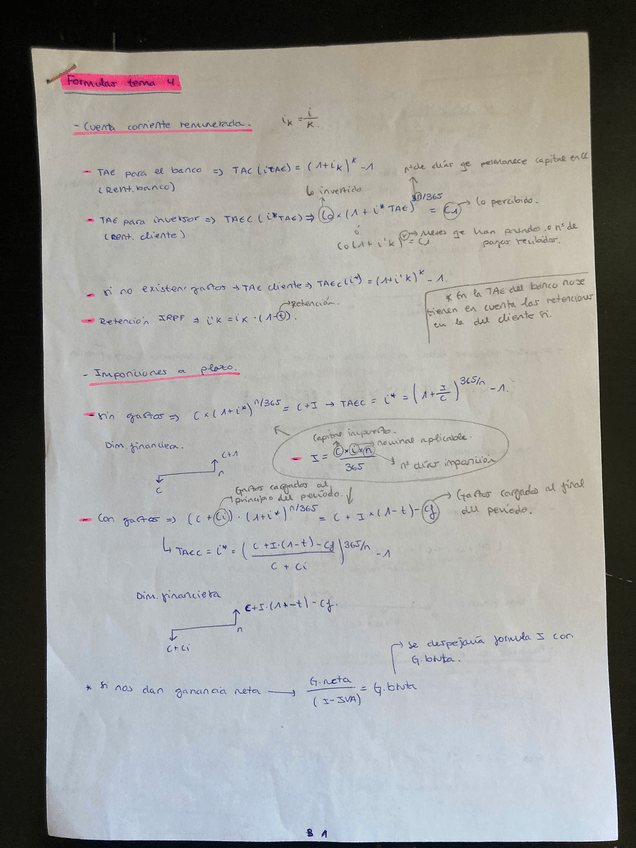 Formulas tema 4.
- Cuenta corriente remunerada. iₖ = i/k.
- TAE para el banco => TAC (iTAE) = (1+iₖ)ᵏ - 1
(Rent. banco)
nº de días qe permanece capital en CC
lo invertido
- TAE para inversor => TAEC (i*TAE) => C₀ × (1 + i* TAE)^n/365 = C1 → lo percibido.
(Rent. cliente)
ó
C₀ (1 + i'k)ᵏ = C1 → Meses qe han pasado o nº de pagos recibidos.
- si no existen gastos → TAC cliente → TAEC (i*) = (1+i'k)ᵏ - 1.
→ Retención.
- Retención IRPF => i'k = iₖ · (1-t).
* En la TAE del banco no se
tienen en cuenta las retenciones
en la del cliente si.
- Imposiciones a plazo.
- Sin gastos => C × (1+i*)^n/365 = C+I → TAEC = i* = (1 + I/C)^365/n - 1.
Dim. financiera.
C+I
n
C
Capital impuesto.
- I = C × i × n / 365
nominal aplicable.
nº días imposición
Gastos cargados al
principio del periodo.
- Con gastos => (C + Ci) · (1+i*)^n/365 = C + I × (1-t) - Cf
Gastos cargados al final
del periodo.
↳ TAEC = i* = (C + I·(1-t) - Cf / C + Ci)^365/n - 1
Dim. financiera
C+I·(1-t) - Cf.
n
C+Ci
→ se despejaría formula I con
G. bruta.
* Si nos dan ganancia neta → G. neta / (1-IVA) = G. bruta
B 1